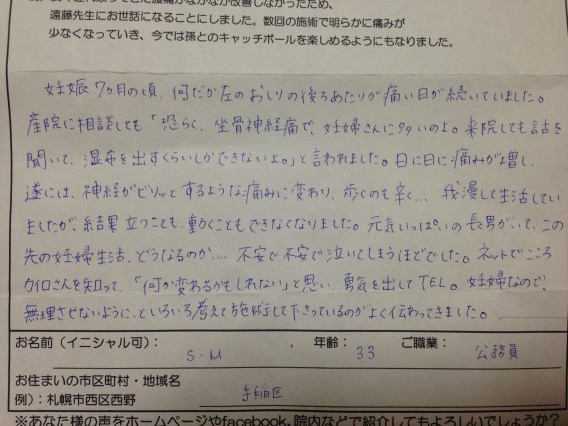 遠藤先生にお世話になることにしました。数回の施術で明らかに痛みが
少なくなっていき、今では孫とのキャッチボールを楽しめるようにもなりました。
妊娠7ヶ月の頃、何だか左のおしりの後ろあたりが痛い日が続いていました。
産院に相談しても「恐らく、坐骨神経痛で、妊婦さんに多いのよ。来院しても話を
聞いて、湿布を出すくらいしかできないよ。」と言われました。日に日に痛みが増し、
遂には、神経がビリッとするような痛みに変わり、歩くのも辛く… 我慢して生活してい
ましたが、結果 立つことも、動くこともできなくなりました。元気いっぱいの長男がいて、この
先の妊婦生活、どうなるのか… 不安で不安で泣いてしまうほどでした。ネットでこころ
カイロさんを知って、「何か変わるかもしれない」と思い、勇気を出してTEL。妊婦なので、
無理させないように、といろいろ考えて施術して下さっているのがよく伝わってきました。
お名前(イニシャル可): S.M 年齢: 33 ご職業: 公務員
お住まいの市区町村・地域名
例):札幌市西区西野 手稲区
※あなた様の声をホームページやfacebook、院内などで紹介してもよろしいでしょうか?